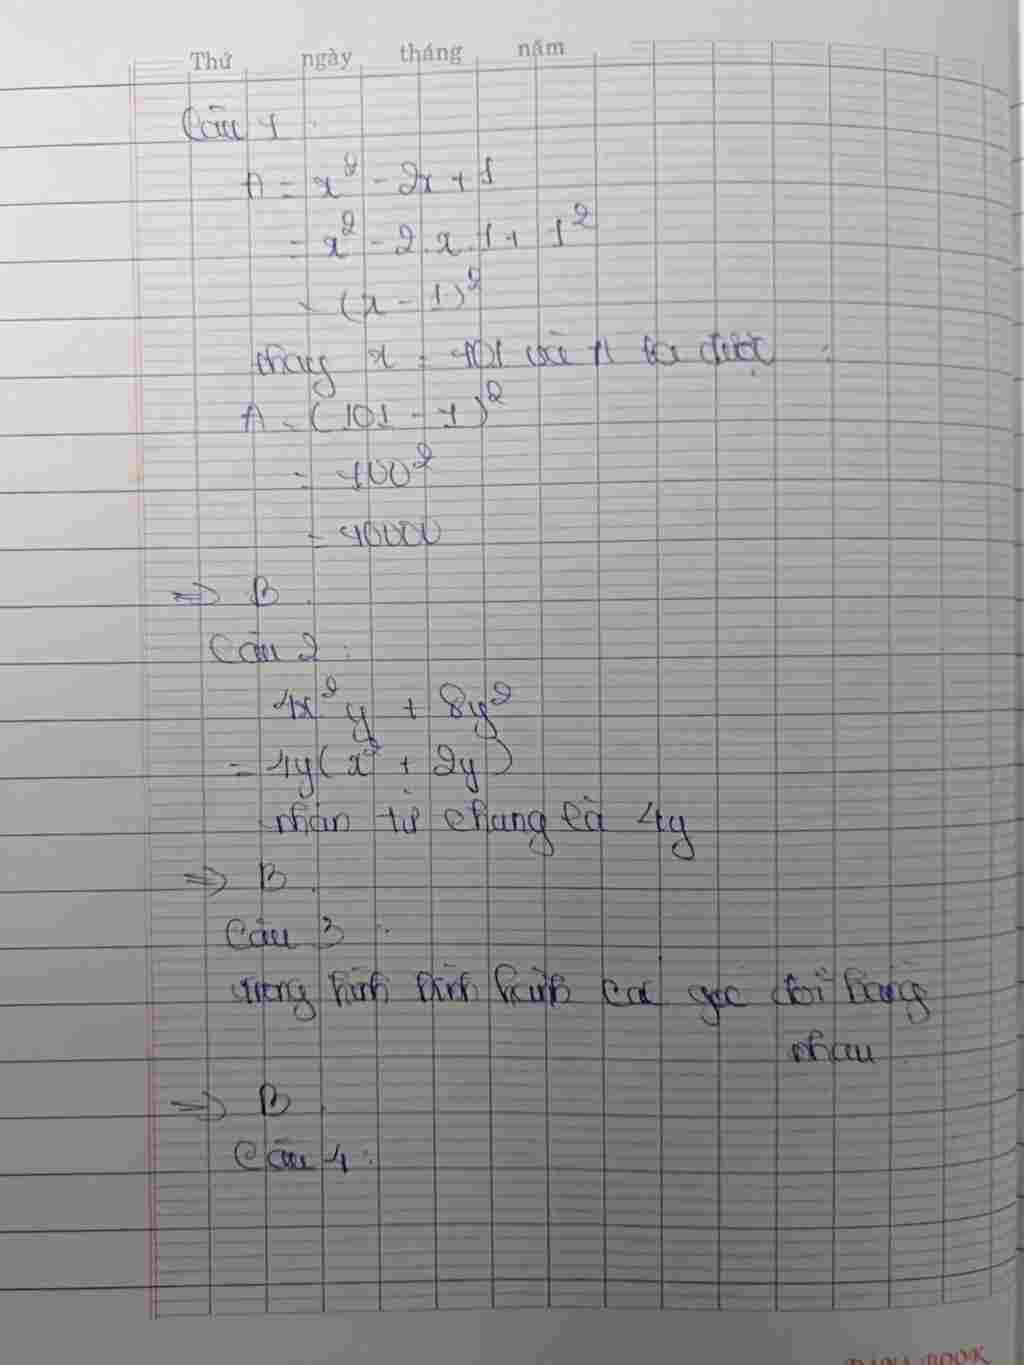 Thứ ngày tháng năm
Câu 1 :
A = x² - 2x + 1
= x² - 2.x.1 + 1²
= (x - 1)²
thay x = 101 vào A ta được :
A = (101 - 1)²
= 100²
= 10000
=> B.
Câu 2 :
4x²y + 8y²
= 4y(x² + 2y)
nhân tử chung là 4y
=> B.
Câu 3 :
trong hình bình hành các góc đối bằng
nhau
=> B.
Câu 4 :